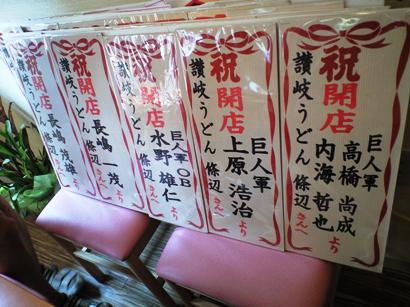 祝開店
巨人軍
高橋 尚成
内海 哲也
より
讃岐うどん 條辺さんへ
祝開店
巨人軍
上原 浩治
より
讃岐うどん 條辺さんへ
祝開店
巨人軍OB
水野 雄仁
より
讃岐うどん 條辺さんへ
祝開店
長嶋 一茂
より
讃岐うどん 條辺さんへ
祝
長嶋 茂雄
より
讃岐うどん 條辺